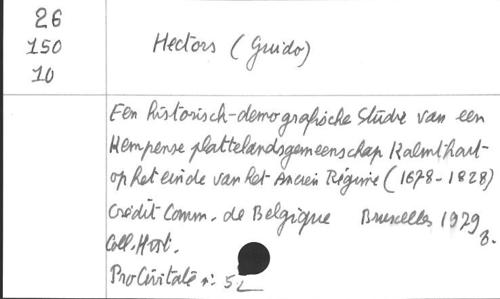 26
150
10
Hectors (Guido)
Een historisch-demografische Studie van een
Kempense plattelandsgemeenschap Kalmthout
op het einde van het Ancien Régime (1678-1828)
Crédit Comm. de Belgique Bruxelles 1979
Coll. Hist.
Pro Civitate n: 52